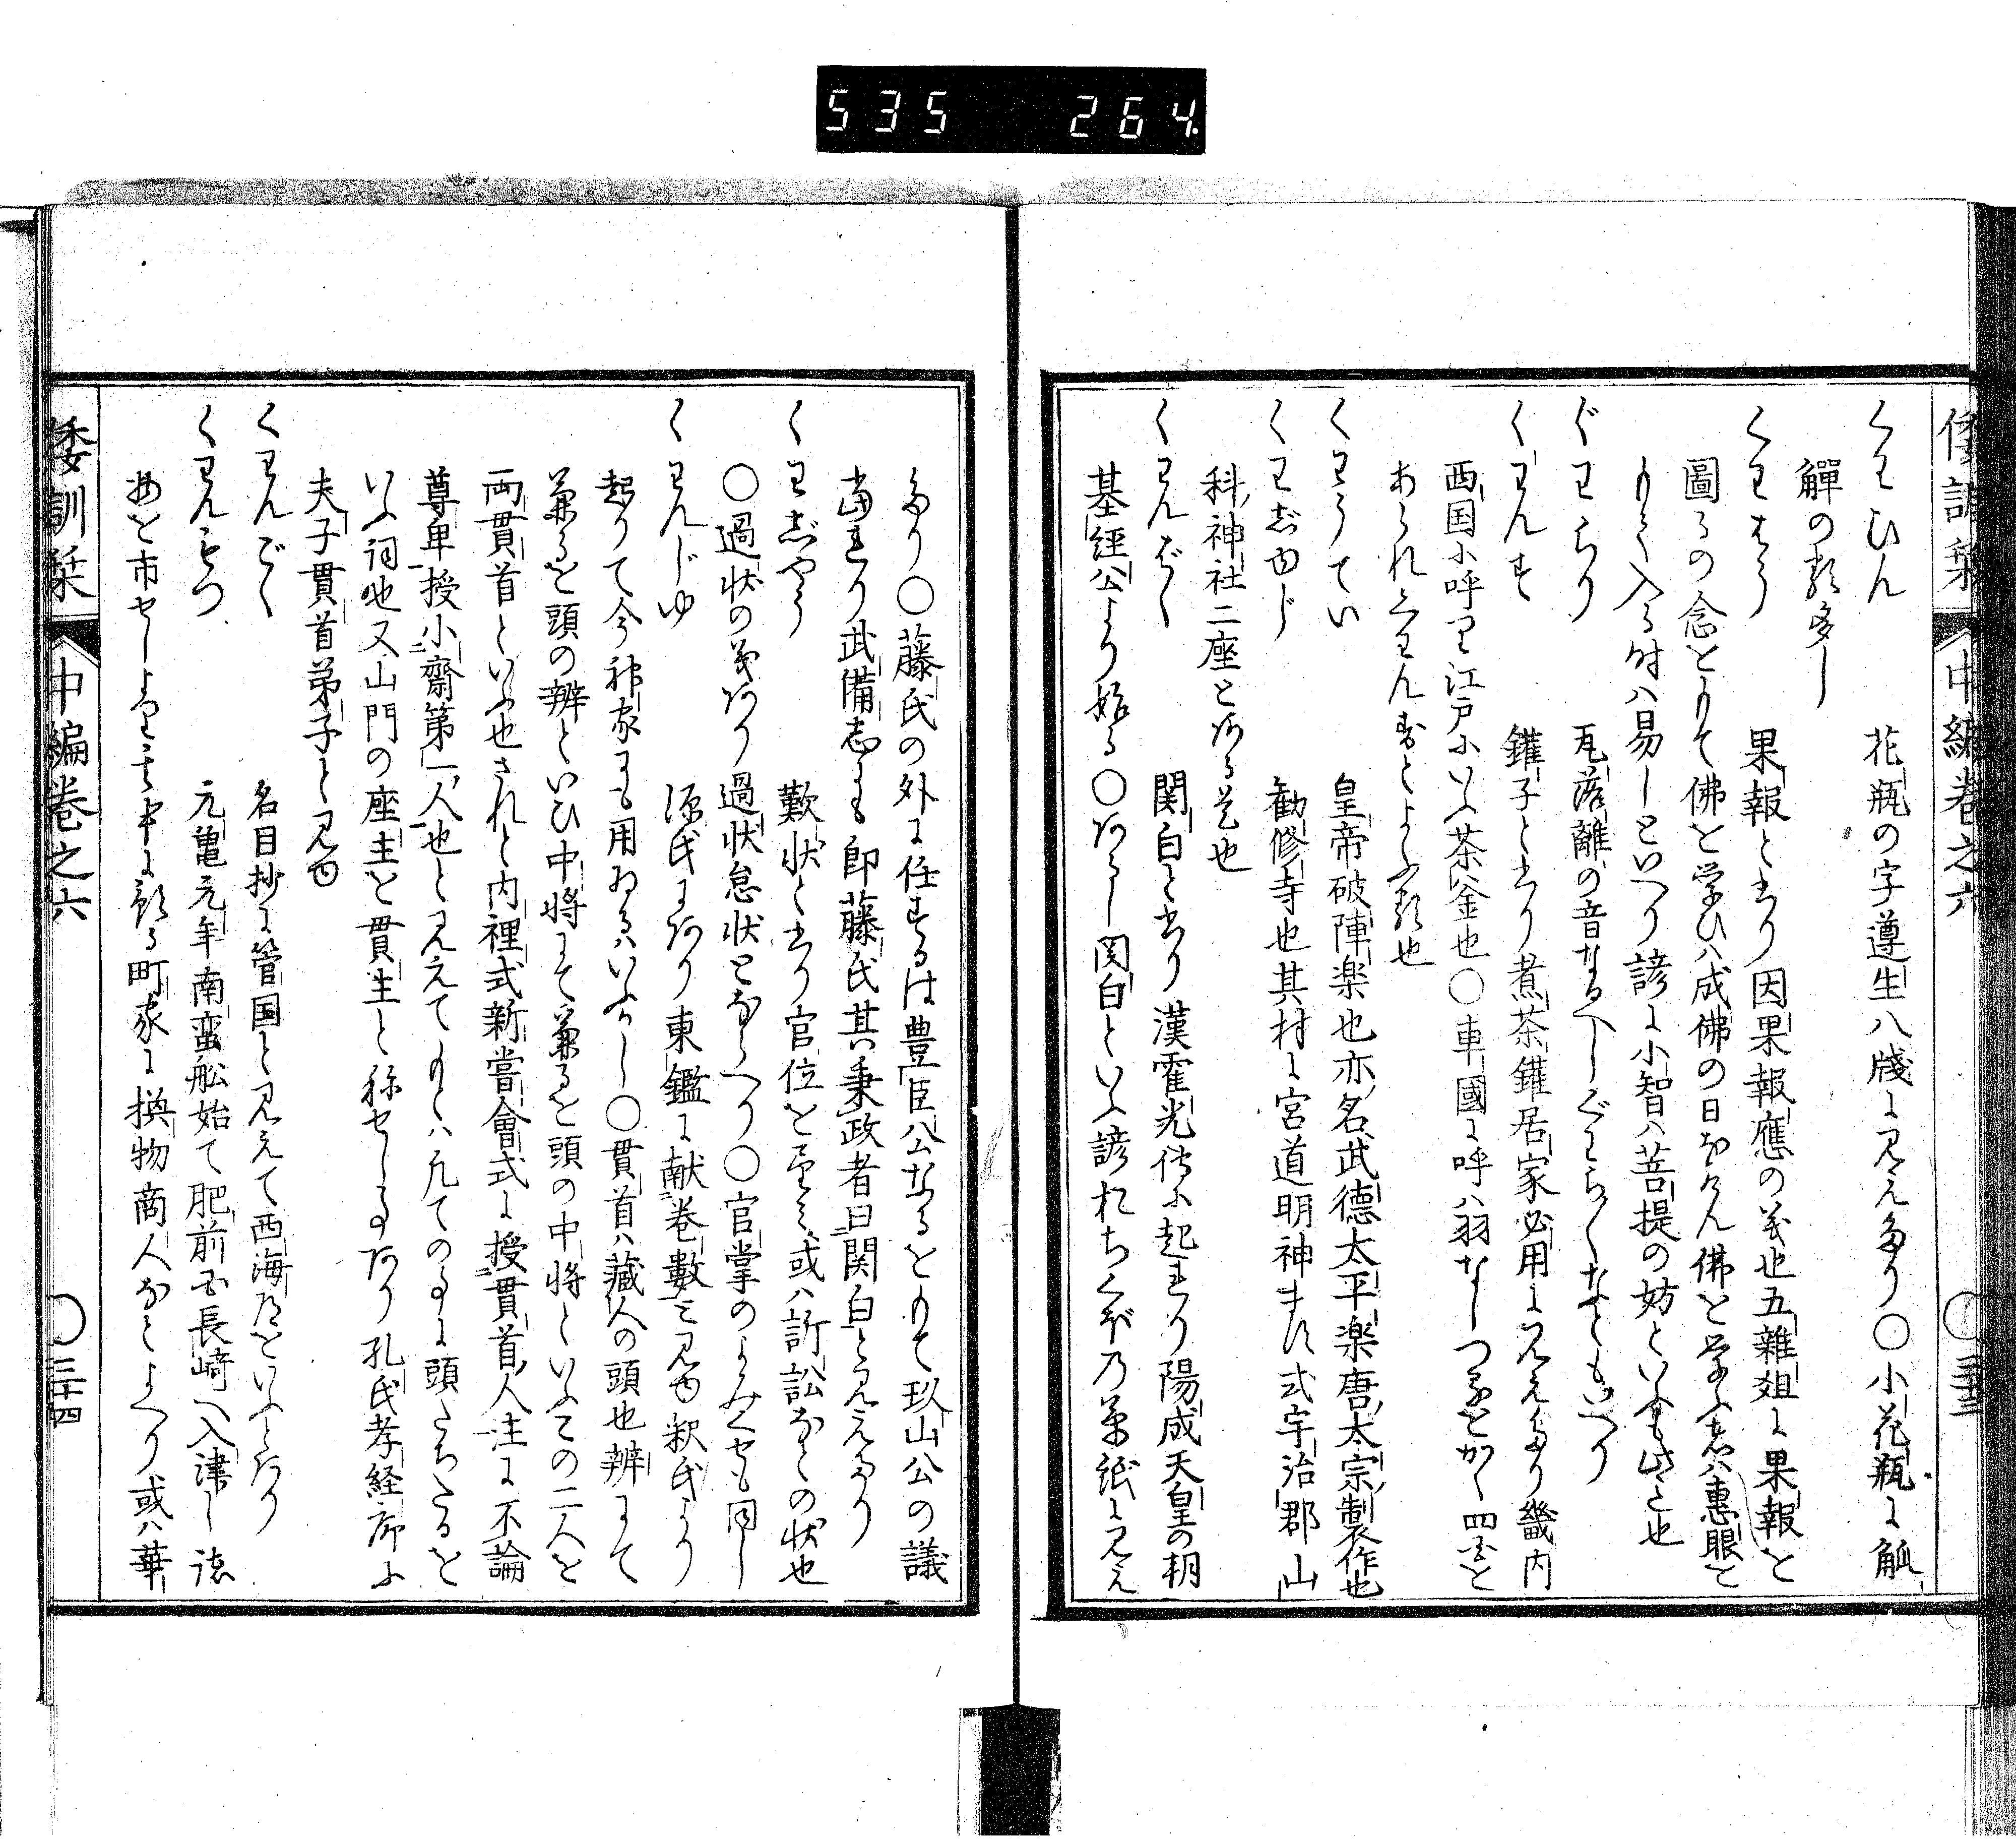 535 264
倭訓栞 中編巻之六 ○三十三
くわひん 花瓶の字遵生八牋に見えたり○小花瓶に觚
觶の類多し
くわはう 果報と書り因果報應の義也五雑爼に果報を
圖るの念をもて佛を学ひハ成佛の日なけん佛を学ふ者ハ惠眼を
もて入る時ハ易しといへり諺に小智ハ菩提の妨といふも此こと也
ぐわらり 瓦落離の音なるへしぐわらくなともいへり
くわんす 鑵子と書り煮茶鑵居家必用に見えたり畿内
西国に呼て江戸にいふ茶釜也○車國に呼ハ羽なしつるをかく四国を
あられくわんすとよふ類也
くわうてい 皇帝破陣楽也亦名武德太平楽唐太宗製作也
くわじゆじ 勧修寺也其村に宮道明神ます式宇治郡山
科神社二座とある是也
くわんばく 関白と書り漢霍光傳に起れり陽成天皇の朝
基經公より始る○あるし関白といふ諺おちくぼ乃草紙に見え
たり○藤氏の外に任するは豊臣公なるをもて玖山公の議
當れり武備志にも即藤氏其秉政者曰関白と見えたり
くわじやう 歎状と書り官位を望ミ或ハ訴訟なとの状也
○過状の義あり過状怠状となへり○官掌のよみくせも同し
くわんじゆ 源氏にあり東鑑に献巻數と見ゆ釈氏より
起りて今神家にも用ゐるハいふかし○貫首ハ藏人の頭也辨にて
兼るを頭の辨といひ中將にて兼るを頭の中將といふこの二人を
両貫首といふ也されと内裡式新嘗會式に授貫首人注に不論
尊卑授小齋第一人也と見えてもとハ凡ての事に頭たちたるを
いふ詞也又山門の座主を貫主と称せし事あり孔氏孝経序に
夫子貫首弟子と見ゆ
くわんごく 名目抄に管国と見えて西海道をいふとあり
くわんもつ 元亀元年南蛮舩始て肥前国長崎へ入津し諸
物を市せしより其中に預る町家に換物商人なとよへり或ハ華
倭訓栞 中編巻之六 ○三十四